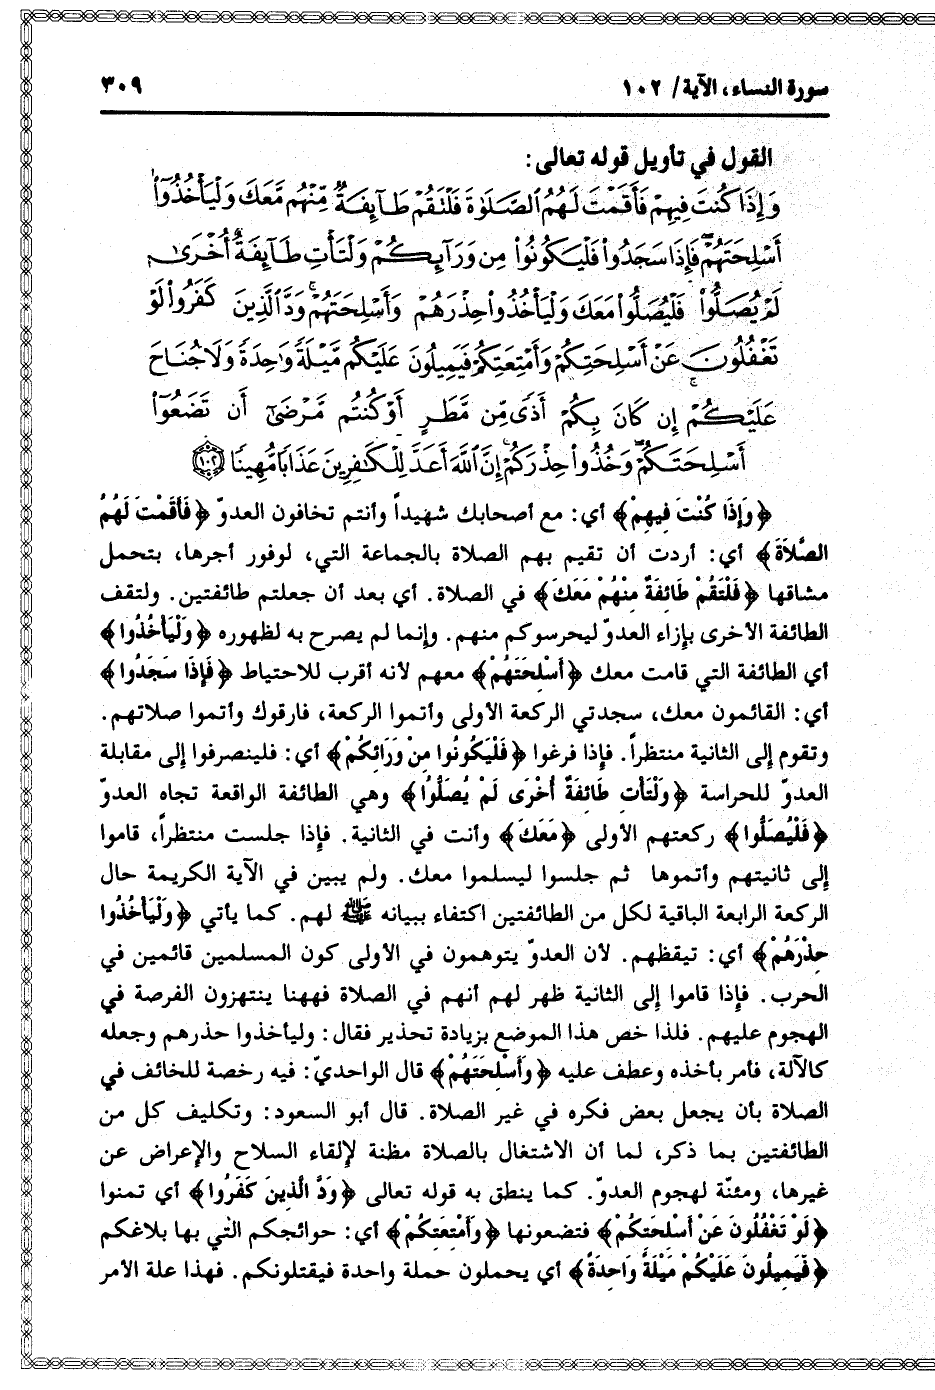 سورة النساء، الآية/ ١٠٢
٣٠٩
القول في تأويل قوله تعالى:
وَإِذَا كُنتَ فِيهِمْ فَأَقَمْتَ لَهُمُ ٱلصَّلَوٰةَ فَلْتَقُمْ طَآئِفَةٌ مِّنْهُم مَّعَكَ وَلْيَأْخُذُوٓا۟
أَسْلِحَتَهُمْ فَإِذَا سَجَدُوا۟ فَلْيَكُونُوا۟ مِن وَرَآئِكُمْ وَلْتَأْتِ طَآئِفَةٌ أُخْرَىٰ
لَمْ يُصَلُّوا۟ فَلْيُصَلُّوا۟ مَعَكَ وَلْيَأْخُذُوا۟ حِذْرَهُمْ وَأَسْلِحَتَهُمْ ۗ وَدَّ ٱلَّذِينَ كَفَرُوا۟ لَوْ
تَغْفُلُونَ عَنْ أَسْلِحَتِكُمْ وَأَمْتِعَتِكُمْ فَيَمِيلُونَ عَلَيْكُم مَّيْلَةً وَٰحِدَةً ۚ وَلَا جُنَاحَ
عَلَيْكُمْ إِن كَانَ بِكُمْ أَذًى مِّن مَّطَرٍ أَوْ كُنتُم مَّرْضَىٰٓ أَن تَضَعُوٓا۟
أَسْلِحَتَكُمْ ۖ وَخُذُوا۟ حِذْرَكُمْ ۗ إِنَّ ٱللَّهَ أَعَدَّ لِلْكَٰفِرِينَ عَذَابًا مُّهِينًا ١٠٢
﴿وَإِذَا كُنْتَ فِيهِمْ﴾ أي: مع أصحابك شهيداً وأنتم تخافون العدوّ ﴿فَأَقَمْتَ لَهُمُ
الصَّلَاةَ﴾ أي: أردت أن تقيم بهم الصلاة بالجماعة التي، لوفور أجرها، بتحمل
مشاقها ﴿فَلْتَقُمْ طَائِفَةٌ مِنْهُمْ مَعَكَ﴾ في الصلاة. أي بعد أن جعلتم طائفتين. ولتقف
الطائفة الأخرى بإزاء العدوّ ليحرسوكم منهم. وإنما لم يصرح به لظهوره ﴿وَلْيَأْخُذُوا﴾
أي الطائفة التي قامت معك ﴿أَسْلِحَتَهُمْ﴾ معهم لأنه أقرب للاحتياط ﴿فَإِذَا سَجَدُوا﴾
أي: القائمون معك، سجدتي الركعة الأولى وأتموا الركعة، فارقوك وأتموا صلاتهم.
وتقوم إلى الثانية منتظراً. فإذا فرغوا ﴿فَلْيَكُونُوا مِنْ وَرَائِكُمْ﴾ أي: فلينصرفوا إلى مقابلة
العدوّ للحراسة ﴿وَلْتَأْتِ طَائِفَةٌ أُخْرَى لَمْ يُصَلُّوا﴾ وهي الطائفة الواقعة تجاه العدوّ
﴿فَلْيُصَلُّوا﴾ ركعتهم الأولى ﴿مَعَكَ﴾ وأنت في الثانية. فإذا جلست منتظراً، قاموا
إلى ثانيتهم وأتموها ثم جلسوا ليسلموا معك. ولم يبين في الآية الكريمة حال
الركعة الرابعة الباقية لكل من الطائفتين اكتفاء ببيانه ﷺ لهم. كما يأتي ﴿وَلْيَأْخُذُوا
حِذْرَهُمْ﴾ أي: تيقظهم. لأن العدوّ يتوهمون في الأولى كون المسلمين قائمين في
الحرب. فإذا قاموا إلى الثانية ظهر لهم أنهم في الصلاة فههنا ينتهزون الفرصة في
الهجوم عليهم. فلذا خص هذا الموضع بزيادة تحذير فقال: وليأخذوا حذرهم وجعله
كالآلة، فأمر بأخذه وعطف عليه ﴿وَأَسْلِحَتَهُمْ﴾ قال الواحديّ: فيه رخصة للخائف في
الصلاة بأن يجعل بعض فكره في غير الصلاة. قال أبو السعود: وتكليف كل من
الطائفتين بما ذكر، لما أن الاشتغال بالصلاة مظنة لإلقاء السلاح والإعراض عن
غيرها، ومئنّة لهجوم العدوّ. كما ينطق به قوله تعالى ﴿وَدَّ الَّذِينَ كَفَرُوا﴾ أي تمنوا
﴿لَوْ تَغْفُلُونَ عَنْ أَسْلِحَتِكُمْ﴾ فتضعونها ﴿وَأَمْتِعَتِكُمْ﴾ أي: حوائجكم التي بها بلاغكم
﴿فَيَمِيلُونَ عَلَيْكُمْ مَيْلَةً وَاحِدَةً﴾ أي يحملون حملة واحدة فيقتلونكم. فهذا علة الأمر